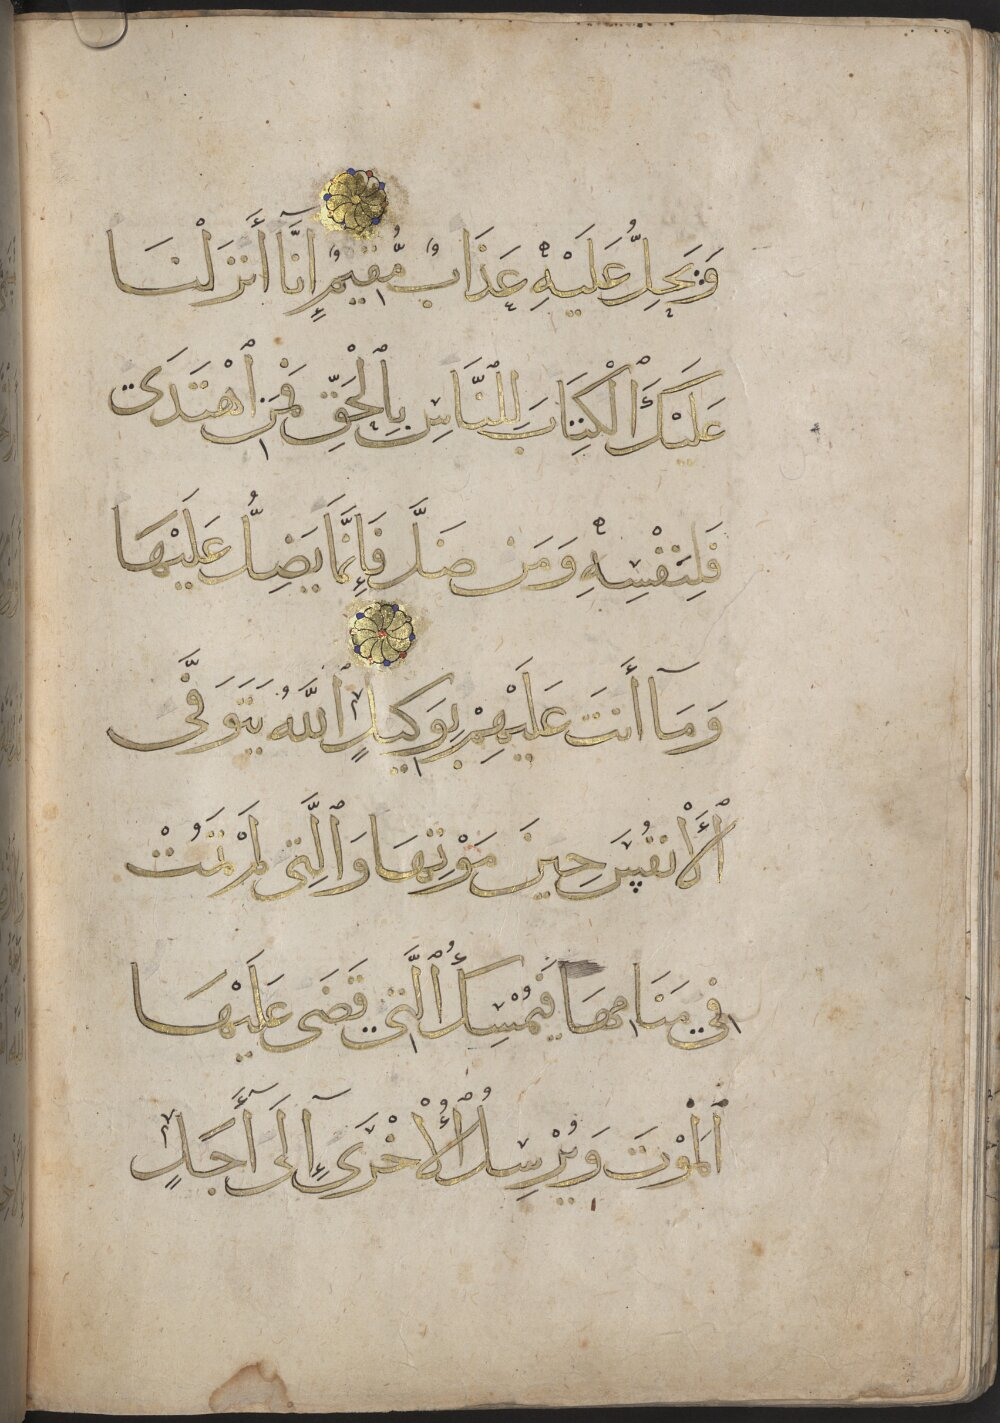 وَيَحِلُّ عَلَيْهِ عَذَابٌ مُّقِيمٌ إِنَّا أَنزَلْنَا
عَلَيْكَ ٱلْكِتَابَ لِلنَّاسِ بِٱلْحَقِّ فَمَنِ ٱهْتَدَىٰ
فَلِنَفْسِهِ وَمَن ضَلَّ فَإِنَّمَا يَضِلُّ عَلَيْهَا
وَمَآ أَنتَ عَلَيْهِمْ بِوَكِيلٍ ٱللَّهُ يَتَوَفَّى
ٱلْأَنفُسَ حِينَ مَوْتِهَا وَٱلَّتِى لَمْ تَمُتْ
فِي مَنَامِهَا فَيُمْسِكُ ٱلَّتِي قَضَى عَلَيْهَا
ٱلْمَوْتَ وَيُرْسِلُ ٱلْأُخْرَىٰ إِلَىٰٓ أَجَلٍ